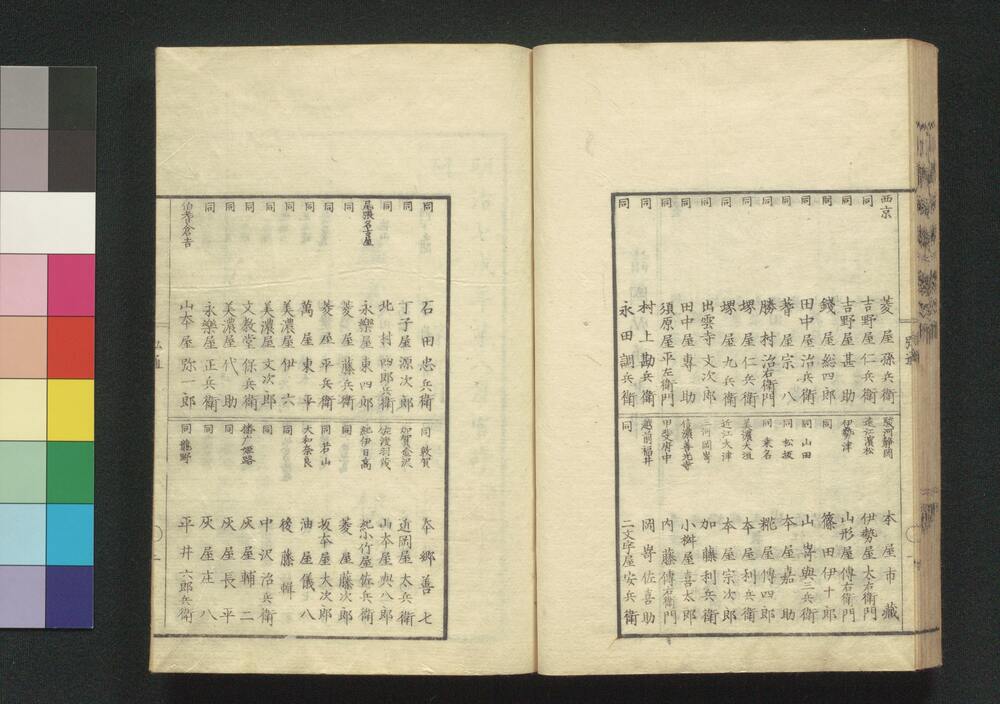 西京 菱屋孫兵衛
同 吉野屋仁兵衛
同 吉野屋甚助
同 錢屋総四郎
同 田中屋治兵衛
同 蓍屋宗八
同 勝村治右衛門
同 堺屋仁兵衛
同 堺屋九兵衛
同 出雲寺文次郎
同 田中屋専助
同 須原屋平左衛門
同 村上勘兵衛
同 永田調兵衛
駿河静岡 本屋市藏
遠江濱松 伊勢屋太右衛門
伊勢津 山形屋傳右衛門
同 篠田伊十郎
同山田 山嵜與三兵衛
同松坂 本屋嘉助
同桑名 糀屋傳四郎
美濃大垣 本屋利兵衛
近江大津 本屋宗次郎
三河岡嵜 加藤利兵衛
信濃善光寺 小桝屋喜太郎
甲斐府中 内藤傳右衛門
越前福井 岡嵜佐喜助
同 二文字屋安兵衛
同 石田忠兵衛
同 丁子屋源次郎
同 北村四郎兵衛
尾張名古屋 永樂屋東四郎
同 菱屋藤兵衛
同 菱屋平兵衛
同 萬屋東平
同 美濃屋伊六
同 美濃屋文次郎
同 文教堂保兵衛
同 美濃屋代助
同 永樂屋正兵衛
伯耆倉吉 山本屋弥一郎
同敦賀 本郷善七
加賀金沢 近岡屋太兵衛
佐渡羽茂 山本屋與八郎
紀伊日高 紀小竹屋佐兵衛
同 菱屋藤次郎
同若山 坂本屋大次郎
大和奈良 油屋儀八
同 後藤輯
同 中沢治兵衛
播广姫路 灰屋輔二
同 灰屋長平
同 灰屋庄八
同龍野 平井六郎兵衛